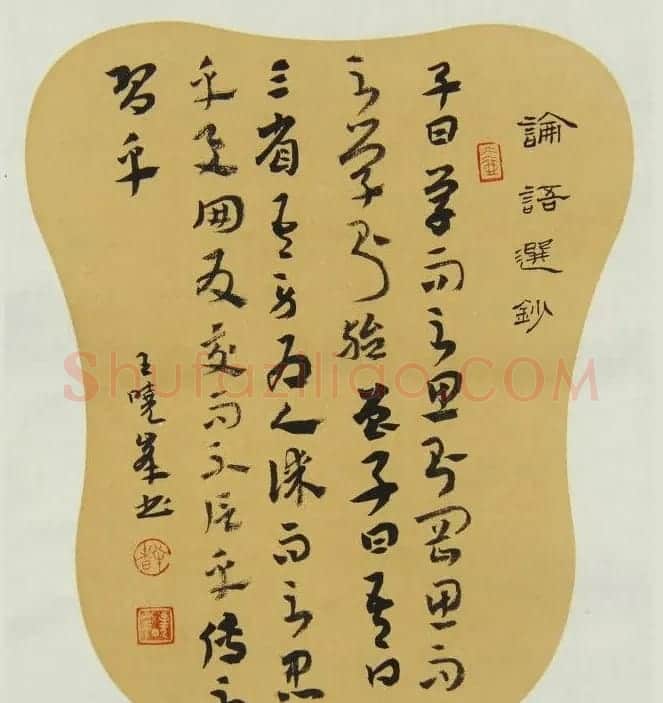 論語選鈔
子曰学而不思则罔思而
不学则殆曾子曰吾日
三省吾身为人谋而不忠
乎与朋友交而不信乎传不
習乎
王曉峯书
Shufaziliao.COM